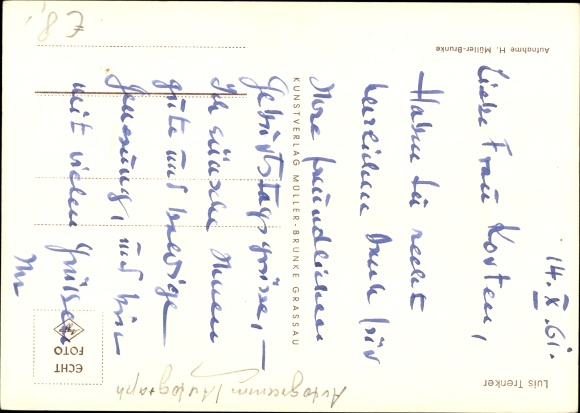 14. X. 61.
Liebe Frau Korten,
Haben Sie recht
herzlichen Dank für
Ihre freundlichen
Geburtstagsgrüsse, —
Ich wünsche Ihnen
gute und baldige
Genesung, und bin
mit vielen Grüssen
Ihr
Luis Trenker
Aufnahme H. Müller-Brunke
KUNSTVERLAG MÜLLER-BRUNKE GRASSAU
ECHT
FOTO
Autogramm / Autograph
€ 8,-